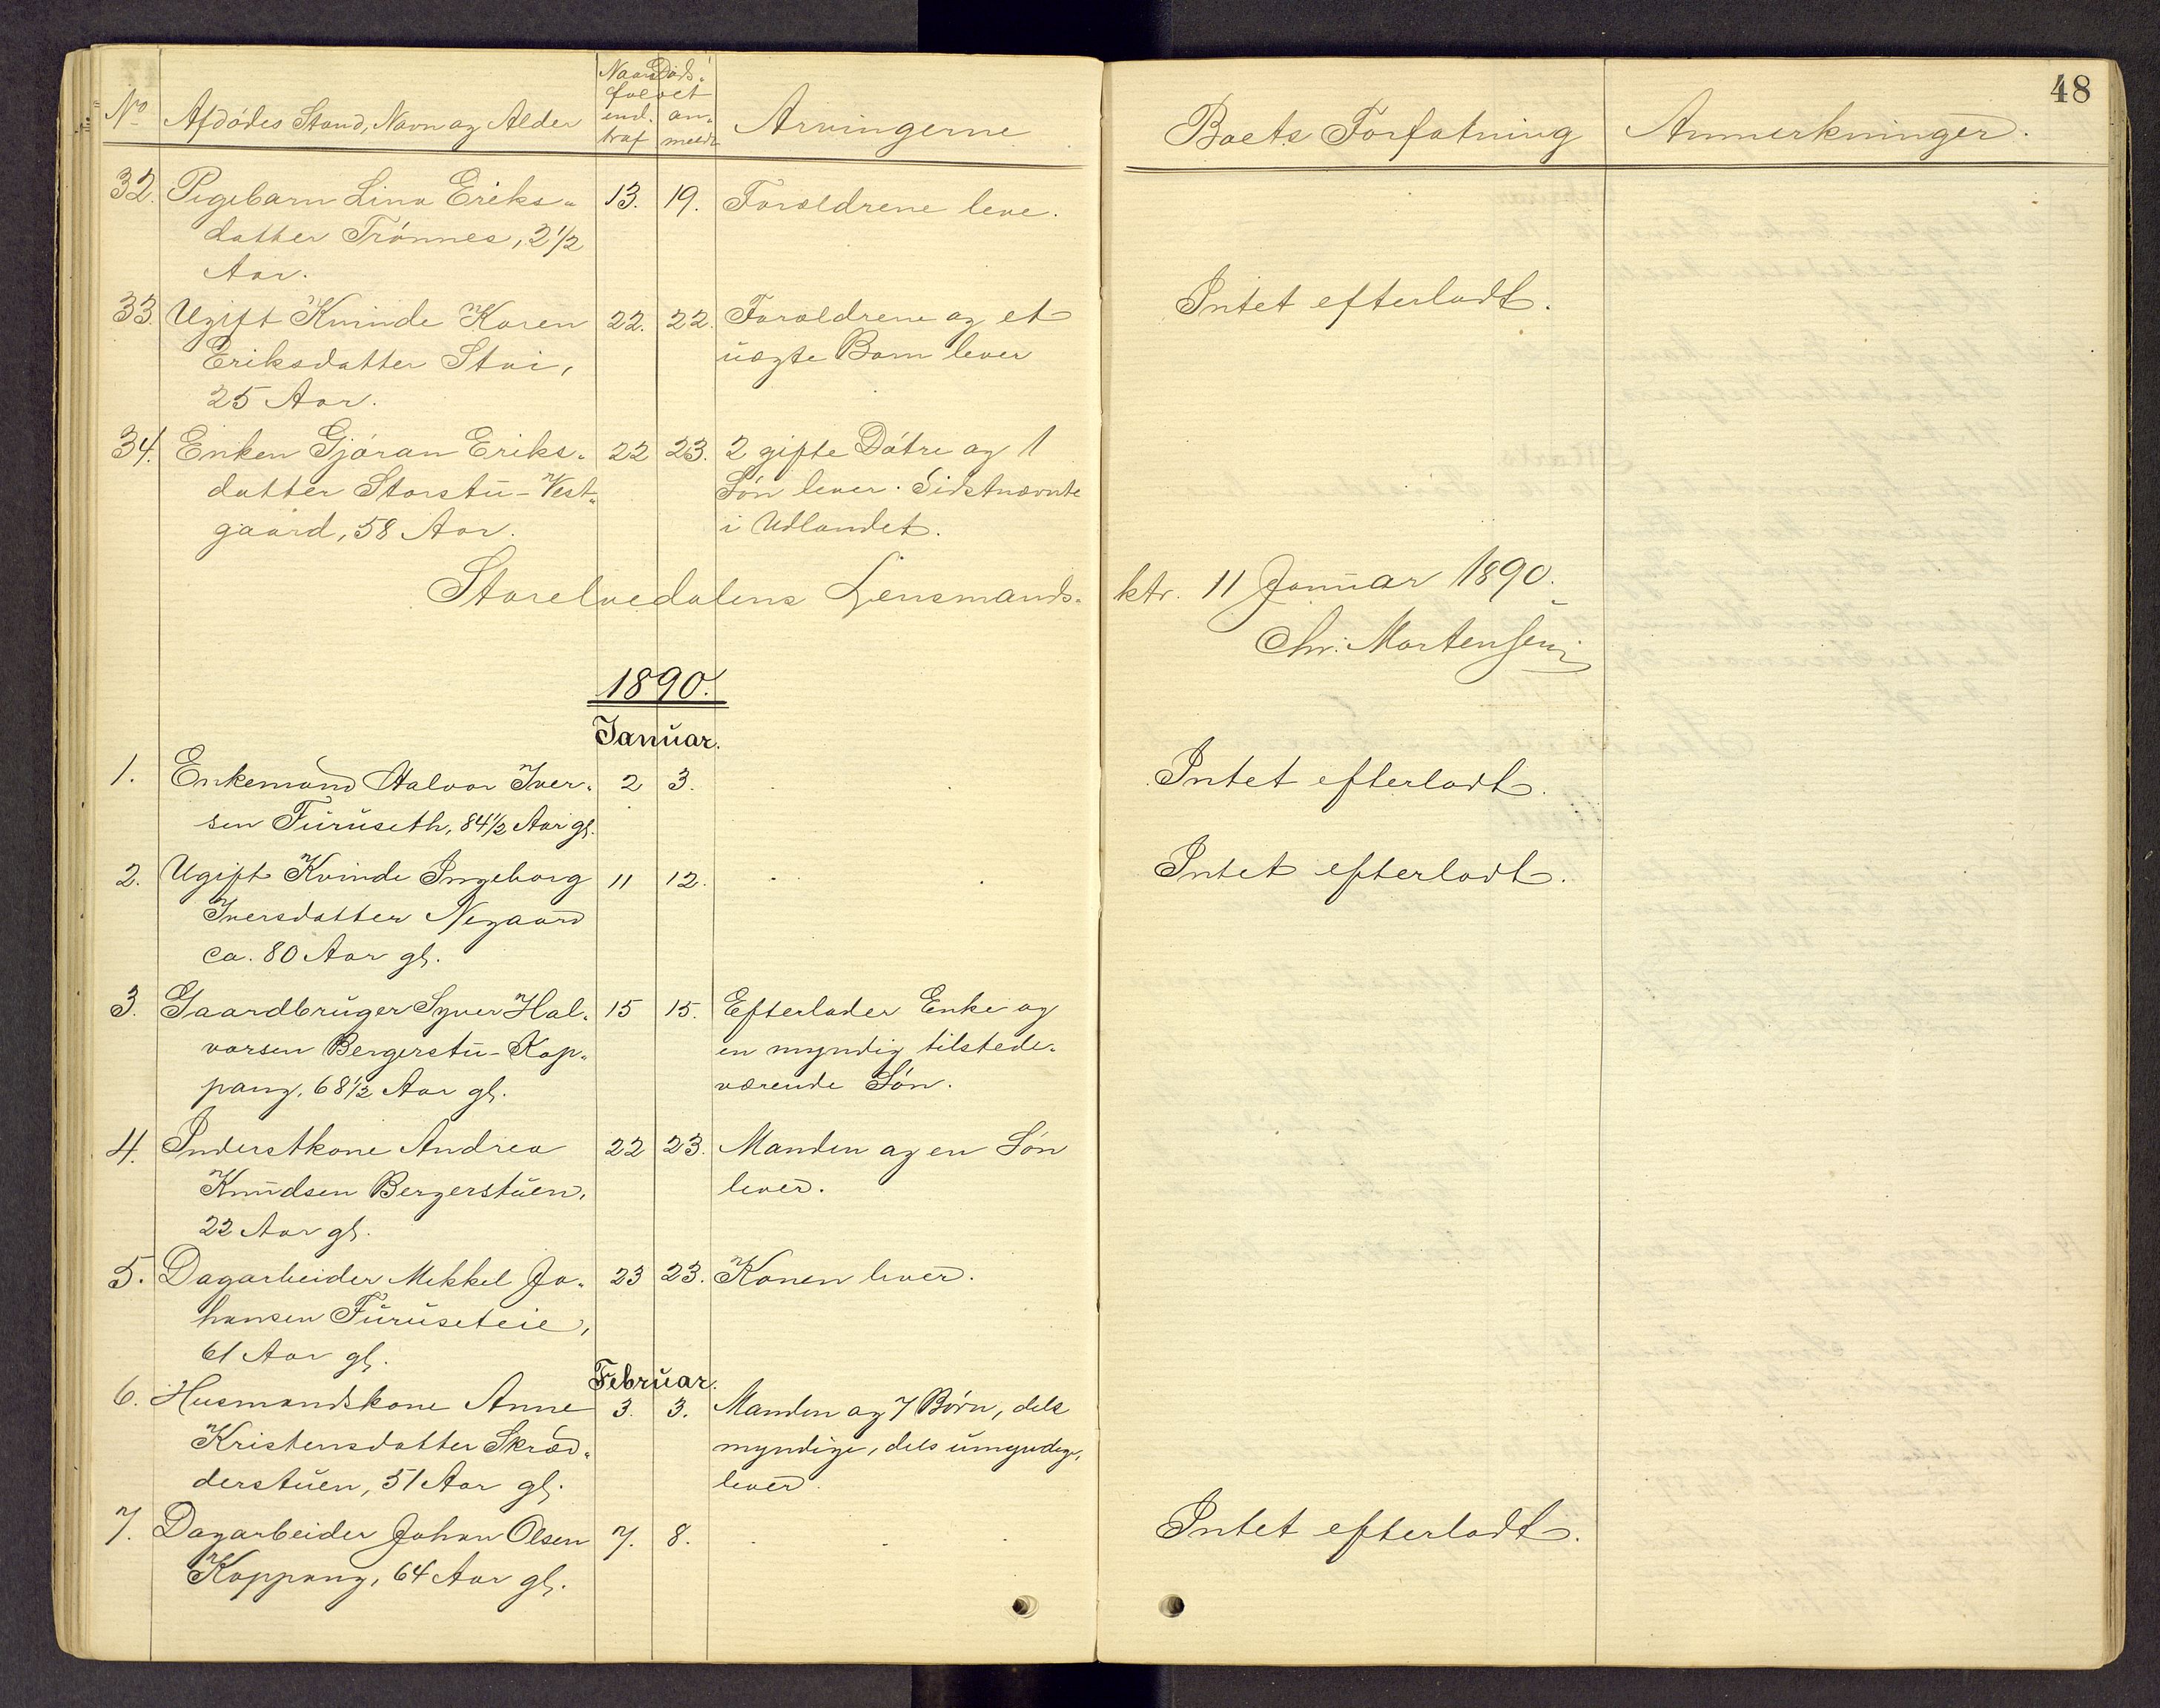 48
No Afdødes Stand, Navn og Alder Naar Døds-
faldet
ind- an-
traf meldt Arvingerne Boets Forfatning Anmerkninger.
32. Pigebarn Lina Eriks- 13. 19. Forældrene leve.
datter Trønnes, 2 1/2
Aar.
33. Ugift Kvinde Karen 22. 22. Forældrene og et Intet efterladt.
Eriksdatter Stai, uægte Barn lever
25 Aar.
34. Enken Gjøran Eriks- 22 23. 2 gifte Døtre og 1
datter Storstu-Vest- Søn lever. Sidstnævnte
gaard, 58 Aar. i Udlandet.
Storelvedalens Lensmands- ktr. 11 Januar 1890.
Chr. Mortensen
1890.
Januar.
1. Enkemand Halvor Iver- 2 3. Intet efterladt.
sen Furuseth, 84 1/2 Aar gl.
2. Ugift Kvinde Ingeborg 11 12. Intet efterladt.
Iversdatter Negaard
ca. 80 Aar gl.
3. Gaardbruger Syver Hal- 15 15. Efterlader Enke og
vorsen Bergerstu-Kop- en myndig tilstede-
pang, 68 1/2 Aar gl. værende Søn.
4. Inderstkone Andrea 22 23. Manden og en Søn
Knudsen Bergerstuen, lever.
22 Aar gl.
5. Dagarbeider Mikkel Jo- 23 23. Konen lever.
hansen Furuseteie,
61 Aar gl.
Februar.
6. Husmandskone Anne 3. 3. Manden og 7 Børn, dels
Kristensdatter Skræd- myndige, dels umyndige,
derstuen, 51 Aar gl. lever.
7. Dagarbeider Johan Olsen 7. 8. Intet efterladt.
Koppang, 64 Aar gl.